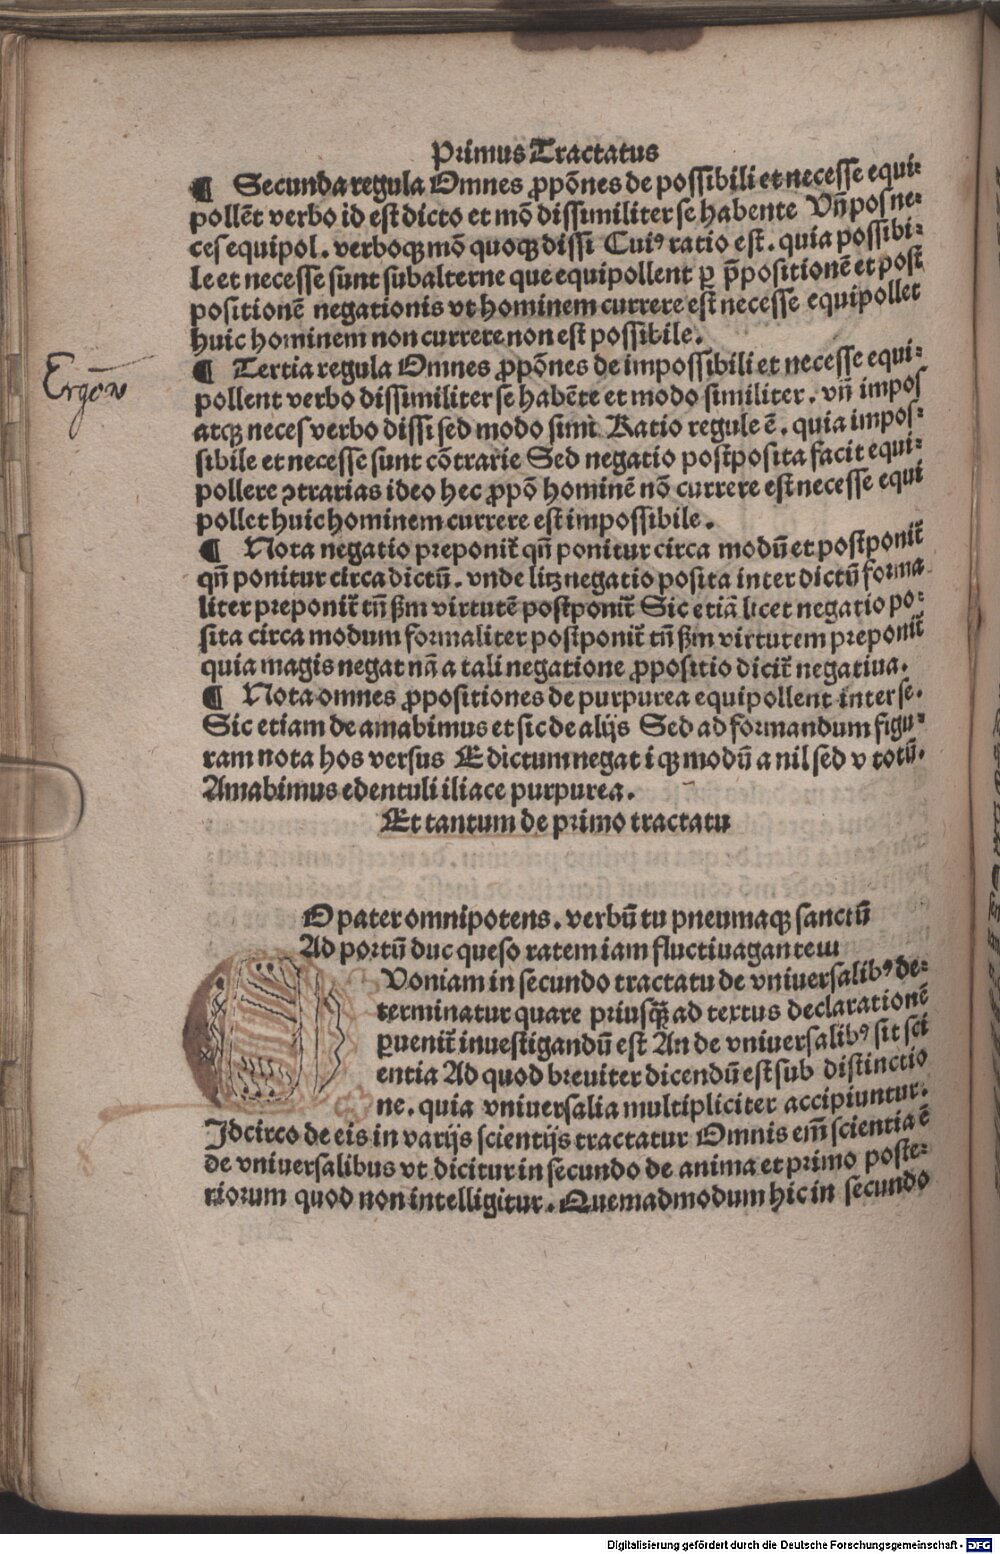 Primus Tractatus
¶ Secunda regula Omnes ꝓpōnes de possibili et necesse equi⸗
pollēt verbo id est dicto et mō dissimiliter se habente Vn̄ pos ne⸗
ces equipol. verboqꝫ mō quoqꝫ dissi Cuiꝰ ratio est. quia possibi⸗
le et necesse sunt subalterne que equipollent ꝑ p̄positionē et post
positionē negationis vt hominem currere est necesse equipollet
huic hominem non currere non est possibile.
Ergōn
¶ Tertia regula Omnes ꝓpōnes de impossibili et necesse equi⸗
pollent verbo dissimiliter se habēte et modo similiter. vn̄ impos
atqꝫ neces verbo dissi sed modo simi Ratio regule ē. quia impos⸗
sibile et necesse sunt cōtrarie Sed negatio postposita facit equi⸗
pollere ꝯtrarias ideo hec ꝓpō hominē nō currere est necesse equi
pollet huic hominem currere est impossibile.
¶ Nota negatio preponit̃ qn̄ ponitur circa modū et postponit̃
qn̄ ponitur circa dictū. vnde litꝫ negatio posita inter dictū forma
liter preponit̃ tn̄ ẜm virtutē postponit̃ Sic etiā licet negatio po⸗
sita circa modum formaliter postponit̃ tn̄ ẜm virtutem preponit̃
quia magis negat nā a tali negatione ꝓpositio dicit̃ negatiua.
¶ Nota omnes ꝓpositiones de purpurea equipollent inter se.
Sic etiam de amabimus et sic de alijs Sed ad formandum figu⸗
ram nota hos versus E dictum negat i qꝫ modū a nil sed v totū.
Amabimus edentuli iliace purpurea.
Et tantum de primo tractatu
O pater omnipotens. verbū tu pneumaqꝫ sanctū
Ad portū duc queso ratem iam fluctiuagantem
Qvoniam in secundo tractatu de vniuersalibꝰ de⸗
terminatur quare priusqꝫ̄ ad textus declarationē
ꝑuenit̃ inuestigandū est An de vniuersalibꝰ sit sci
entia Ad quod breuiter dicendū est sub distinctio
ne. quia vniuersalia multipliciter accipiuntur.
Idcirco de eis in varijs scientijs tractatur Omnis em̄ scientia ē
de vniuersalibus vt dicitur in secundo de anima et primo poste⸗
riorum quod non intelligitur. Quemadmodum hic in secundo
Digitalisierung gefördert durch die Deutsche Forschungsgemeinschaft - DFG